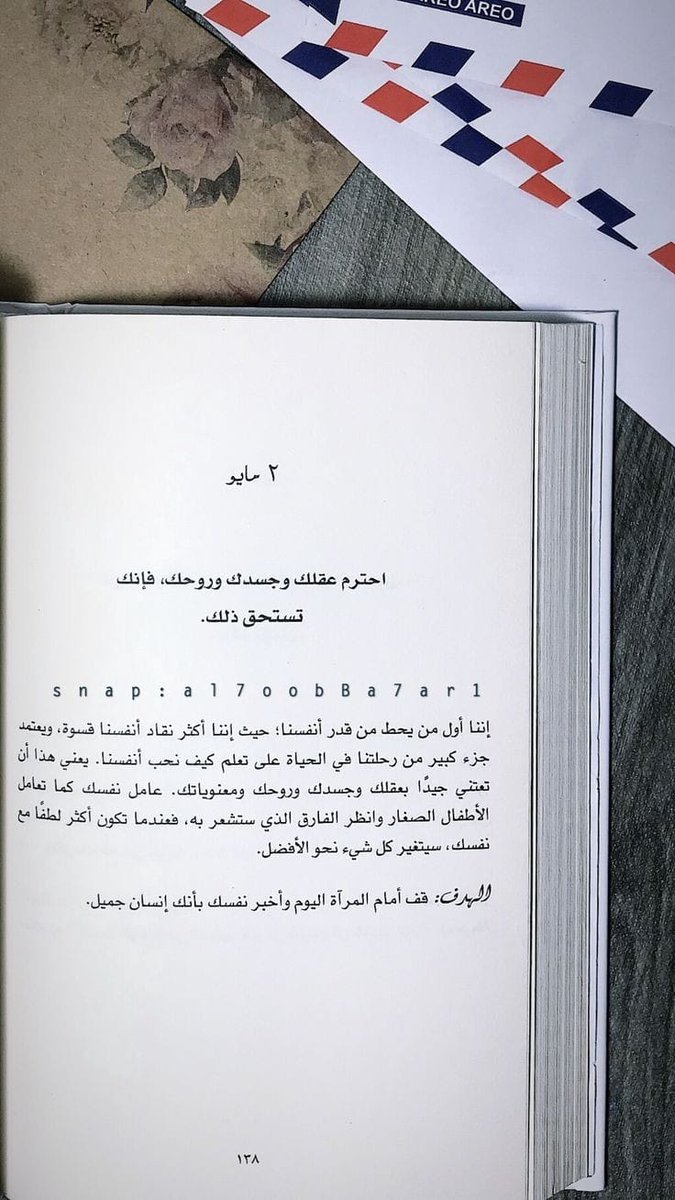 AREO AREO
٢ مايو
احترم عقلك وجسدك وروحك، فإنك
تستحق ذلك.
snap:al7oobBa7ar1
إننا أول من يحط من قدر أنفسنا؛ حيث إننا أكثر نقاد أنفسنا قسوة، ويعتمد
جزء كبير من رحلتنا في الحياة على تعلم كيف نحب أنفسنا. يعني هذا أن
تعتني جيدًا بعقلك وجسدك وروحك ومعنوياتك. عامل نفسك كما تعامل
الأطفال الصغار وانظر الفارق الذي ستشعر به، فعندما تكون أكثر لطفًا مع
نفسك، سيتغير كل شيء نحو الأفضل.
الهدف: قف أمام المرآة اليوم وأخبر نفسك بأنك إنسان جميل.
١٣٨